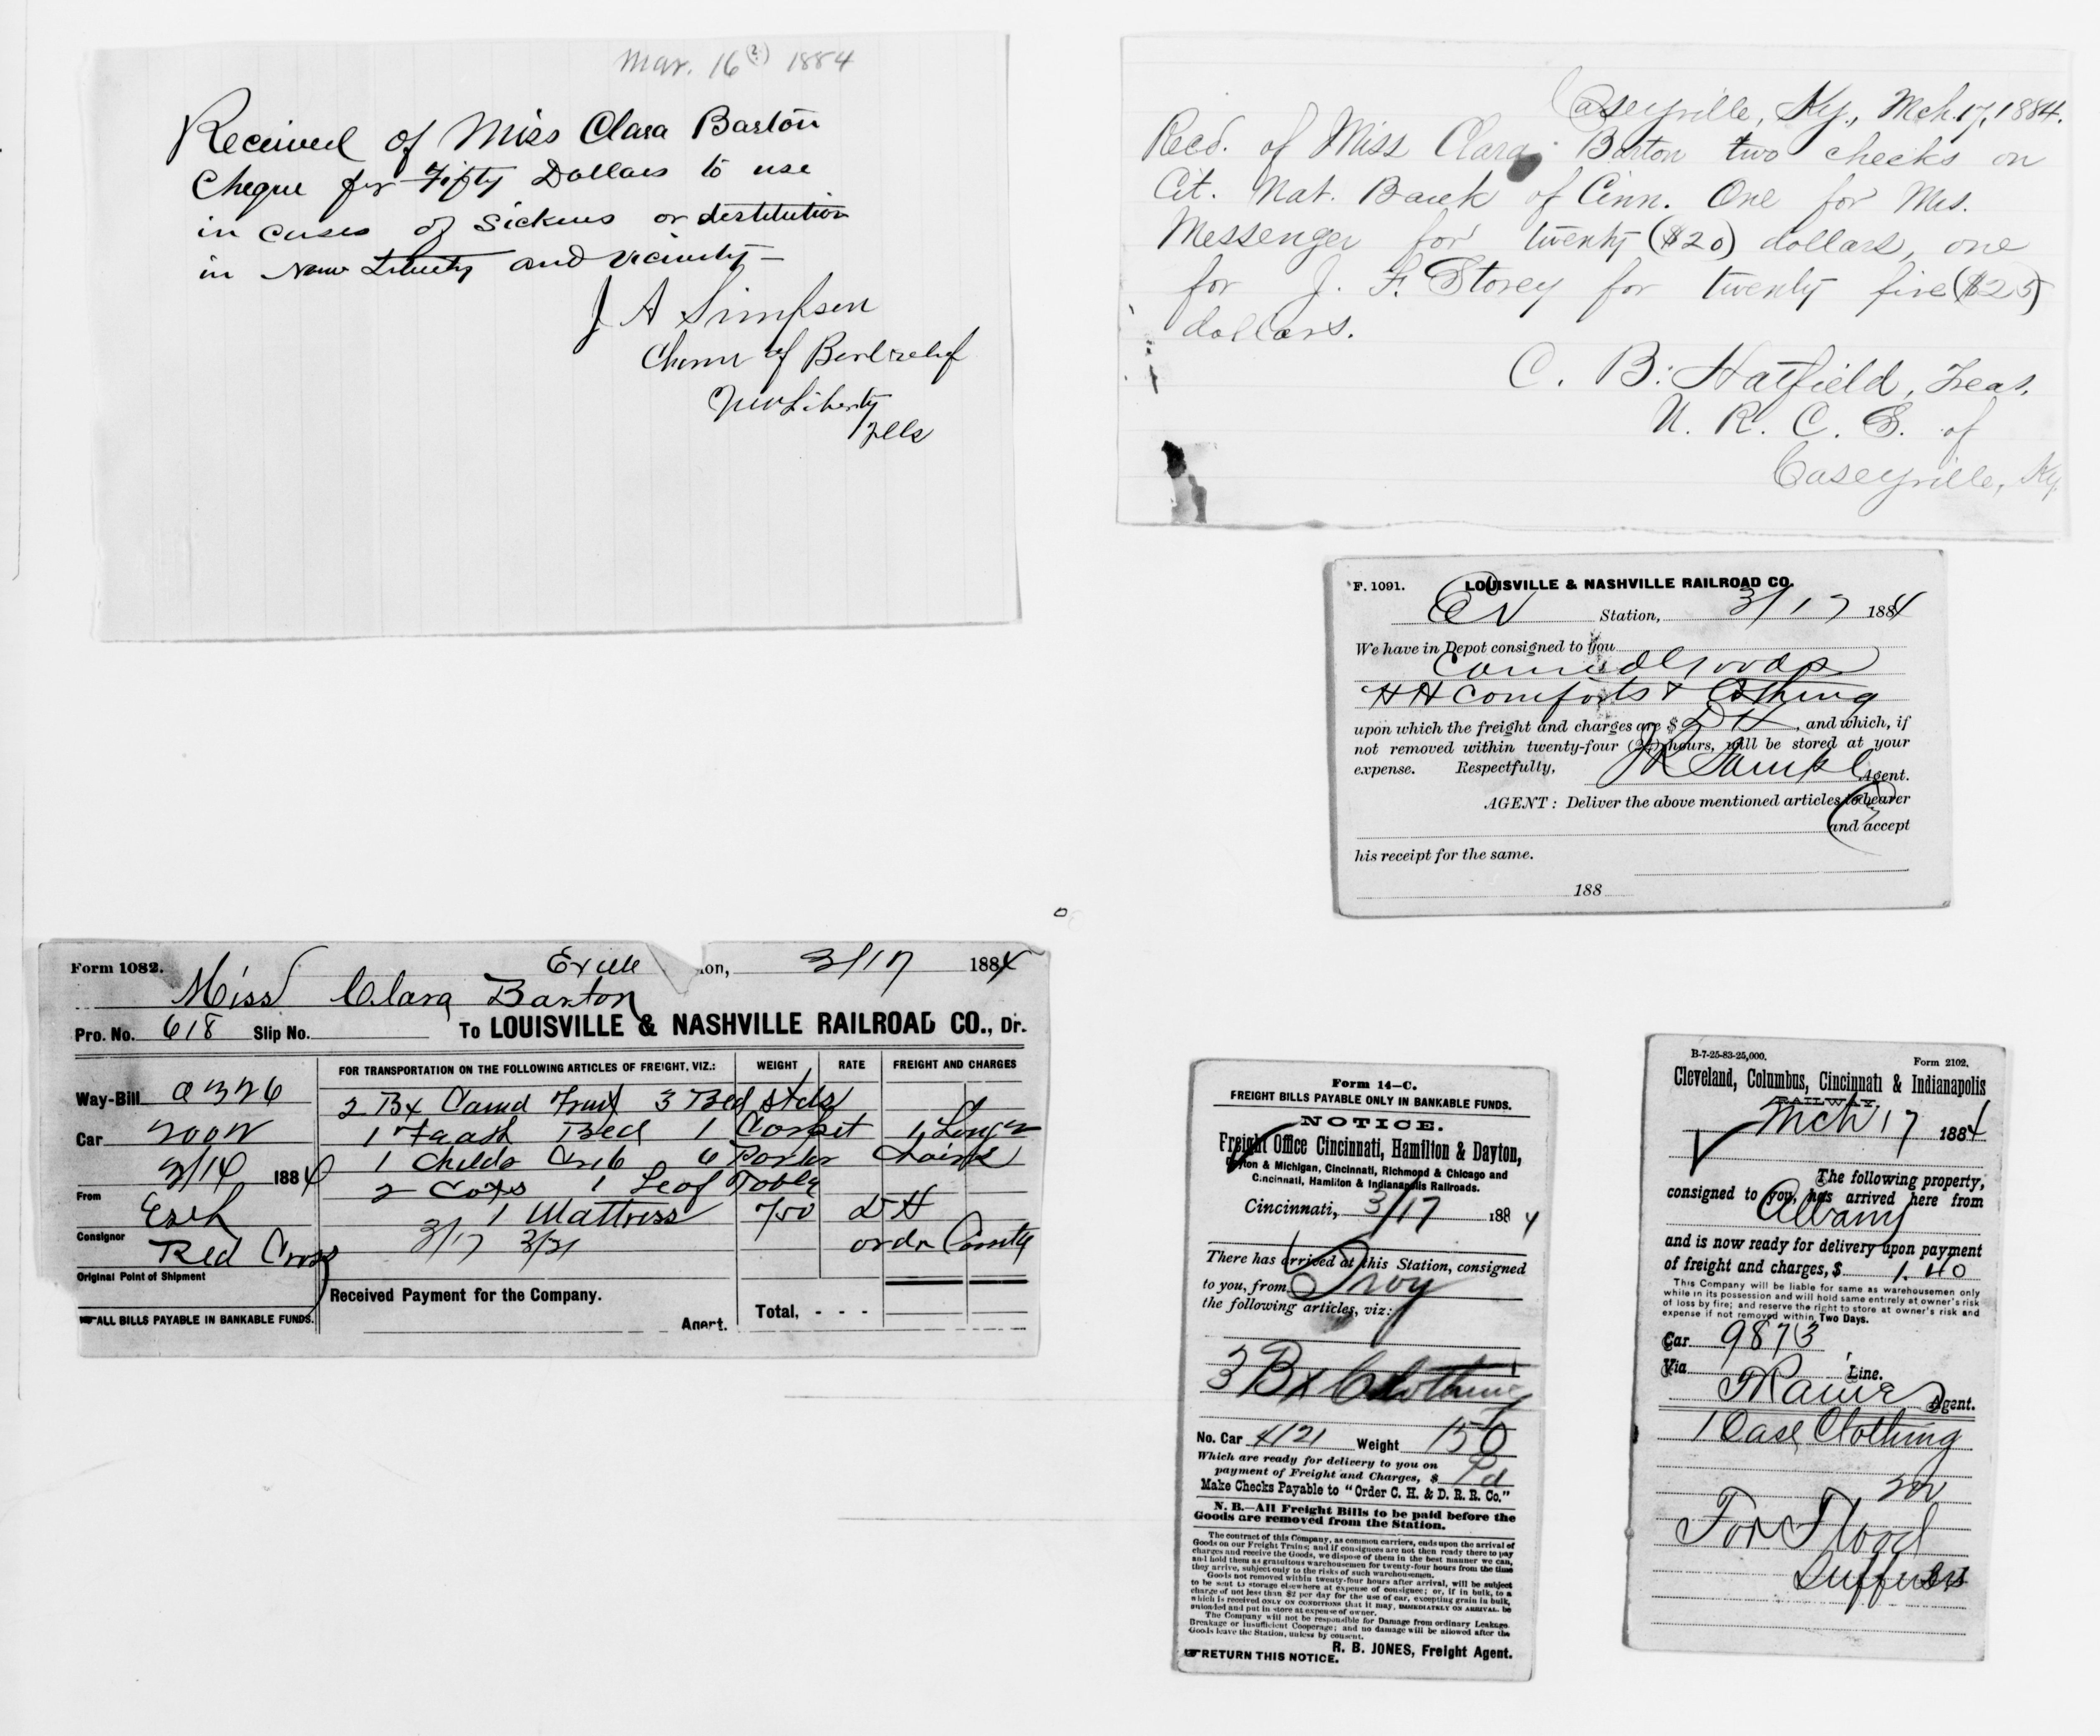 Mar. 16(?) 1884
Received of Miss Clara Barton
Cheque for Fifty Dollars to use
in cases of Sickness or destitution
in New Liberty and vicinity—
J A Simpson
Chemn of Benl relief
New Liberty
Ills
Caseyville, Ky., Mch. 17, 1884.
Recd. of Miss Clara Barton two checks on
Cit. Nat. Bank of Cinn. One for Mrs.
Messenger for twenty ($20) dollars, one
for J. F. Storey for twenty five ($25)
dollars.
C. B. Hatfield, Treas.
N. R. C. S. of
Caseyville, Ky.
F. 1091. LOUISVILLE & NASHVILLE RAILROAD CO.
EV Station, 3/17 1884
We have in Depot consigned to you
Canned Goods
HH comforts & Clothing
upon which the freight and charges are $ DH, and which, if
not removed within twenty-four (24) hours, will be stored at your
expense. Respectfully,
Agent.
AGENT: Deliver the above mentioned articles to bearer
and accept
his receipt for the same.
188
Form 1082. Eville ion, 3/17 1884
Miss Clara Barton
Pro. No. 618 Slip No. To LOUISVILLE & NASHVILLE RAILROAD CO., Dr.
FOR TRANSPORTATION ON THE FOLLOWING ARTICLES OF FREIGHT, VIZ.: WEIGHT RATE FREIGHT AND CHARGES
Way-Bill 0326 2 Bx Cannd Fruit 3 Bed stds
Car 1 Bed 1 Carpet 1 Longe
3/14 1884 1 Childs Crib 6 Parlor Chairs
2 Cots 1 Leaf Table
From 1 Mattress 750 DH
Consignor Red Cross 3/17 3/21 order Comte
Original Point of Shipment
Received Payment for the Company.
ALL BILLS PAYABLE IN BANKABLE FUNDS. Agent. Total, - - -
Form 14–C.
FREIGHT BILLS PAYABLE ONLY IN BANKABLE FUNDS.
NOTICE.
Freight Office Cincinnati, Hamilton & Dayton,
Dayton & Michigan, Cincinnati, Richmond & Chicago and
Cincinnati, Hamilton & Indianapolis Railroads.
Cincinnati, 3/17 1884
There has arrived at this Station, consigned
to you, from Troy
the following articles, viz:
3 Bx Clothing
No. Car 4121 Weight 150
Which are ready for delivery to you on
payment of Freight and Charges, $ Pd
Make Checks Payable to "Order C. H. & D. R. R. Co."
N. B.—All Freight Bills to be paid before the
Goods are removed from the Station.
The contract of this Company, as common carriers, ends upon the arrival of
Goods on our Freight Trains; and if consignees are not then ready there to pay
charges and receive the Goods, we dispose of them in the best manner we can,
and hold them as gratuitous warehousemen for twenty-four hours from the time
they arrive, subject only to the risks of such warehousemen.
Goods not removed within twenty-four hours after arrival, will be subject
to be sent to storage elsewhere at expense of consignee; or, if in bulk, to a
charge of not less than $2 per day for the use of car, excepting grain in bulk,
which is received ONLY ON CONDITIONS that it may, IMMEDIATELY ON ARRIVAL, be
unloaded and put in store at expense of owner.
The Company will not be responsible for Damage from ordinary Leakage,
Breakage or Insufficient Cooperage; and no damage will be allowed after the
Goods leave the Station, unless by consent.
R. B. JONES, Freight Agent.
RETURN THIS NOTICE.
B-7-25-83-25,000. Form 2102.
Cleveland, Columbus, Cincinnati & Indianapolis
RAILWAY.
Mch 17 1884
The following property,
consigned to you, has arrived here from
Albany
and is now ready for delivery upon payment
of freight and charges, $ 1.40
This Company will be liable for same as warehousemen only
while in its possession and will hold same entirely at owner's risk
of loss by fire; and reserve the right to store at owner's risk and
expense if not removed within Two Days.
Car 9873
Via Line.
Agent.
1 Case Clothing
For Flood
Sufferers